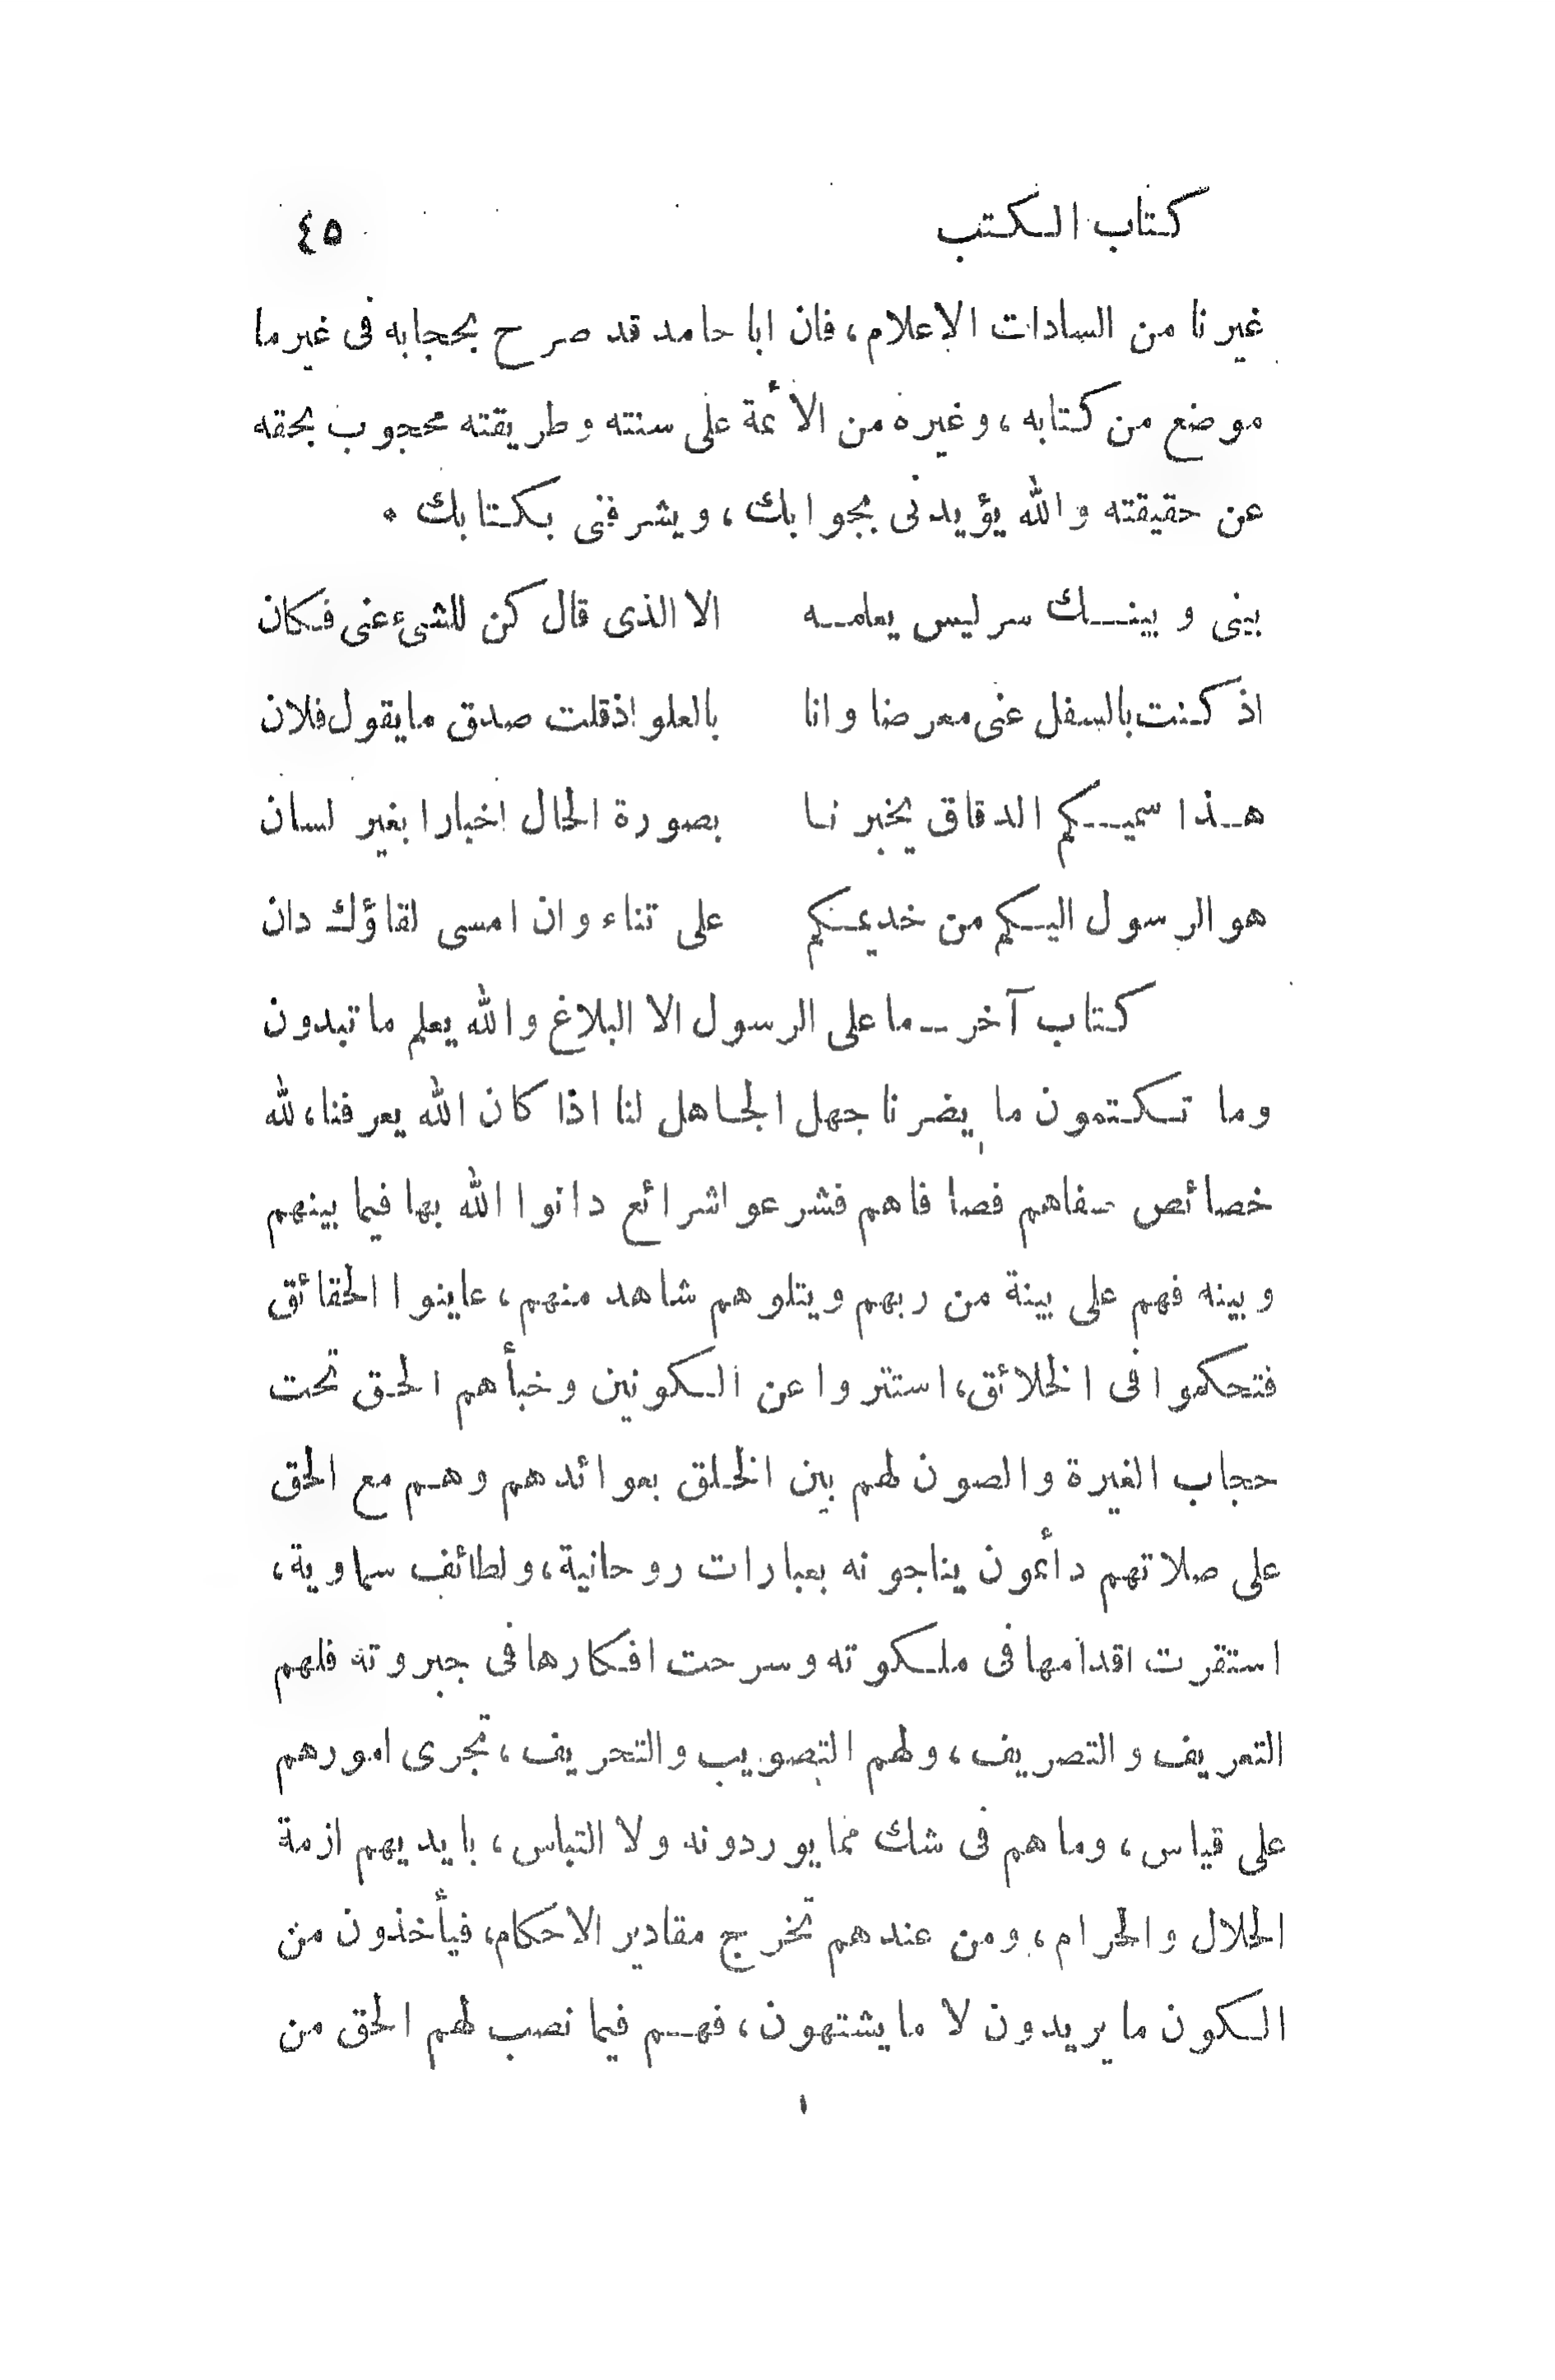 كتاب الكتب ٤٥
غيرنا من السادات الاعلام، فان ابا حامد قد صرح بحجابه فى غير ما
موضع من كتابه، وغيره من الأئمة على سنته وطريقته محجوب بحقه
عن حقيقته والله يؤيدنى بجوابك، ويشرفنى بكتابك .
بينى وبينك سر ليس يعلمه الا الذى قال كن للشىء عنى فكان
اذ كنت بالسفل عنى معرضا وانا بالعلو اذ قلت صدق ما يقول فلان
هذا سميكم الدقاق يخبرنا بصورة الحال اخبارا بغير لسان
هو الرسول اليكم من خديمكم على تناء وان امسى لقاؤك دان
كتاب آخر ــ ما على الرسول الا البلاغ والله يعلم ما تبدون
وما تكتمون ما يضرنا جهل الجاهل لنا اذا كان الله يعرفنا، لله
خصائص صفاهم فصافاهم فشرعوا شرائع دانوا الله بها فيما بينهم
وبينه فهم على بينة من ربهم ويتلوهم شاهد منهم، عاينوا الحقائق
فتحكموا فى الخلائق، استتروا عن الكونين وخبأهم الحق تحت
حجاب الغيرة والصون لهم بين الخلق بعوائدهم وهم مع الحق
على صلاتهم دائمون يناجونه بعبارات روحانية، ولطائف سماوية،
استقرت اقدامها فى ملكوته وسرحت افكارها فى جبروته فلهم
التعريف والتصريف، ولهم التصويب والتحريف، تجرى امورهم
على قياس، وما هم فى شك مما يوردونه ولا التباس، بايديهم ازمة
الحلال والحرام، ومن عندهم تخرج مقادير الاحكام، فيأخذون من
الكون ما يريدون لا ما يشتهون، فهم فيما نصب لهم الحق من